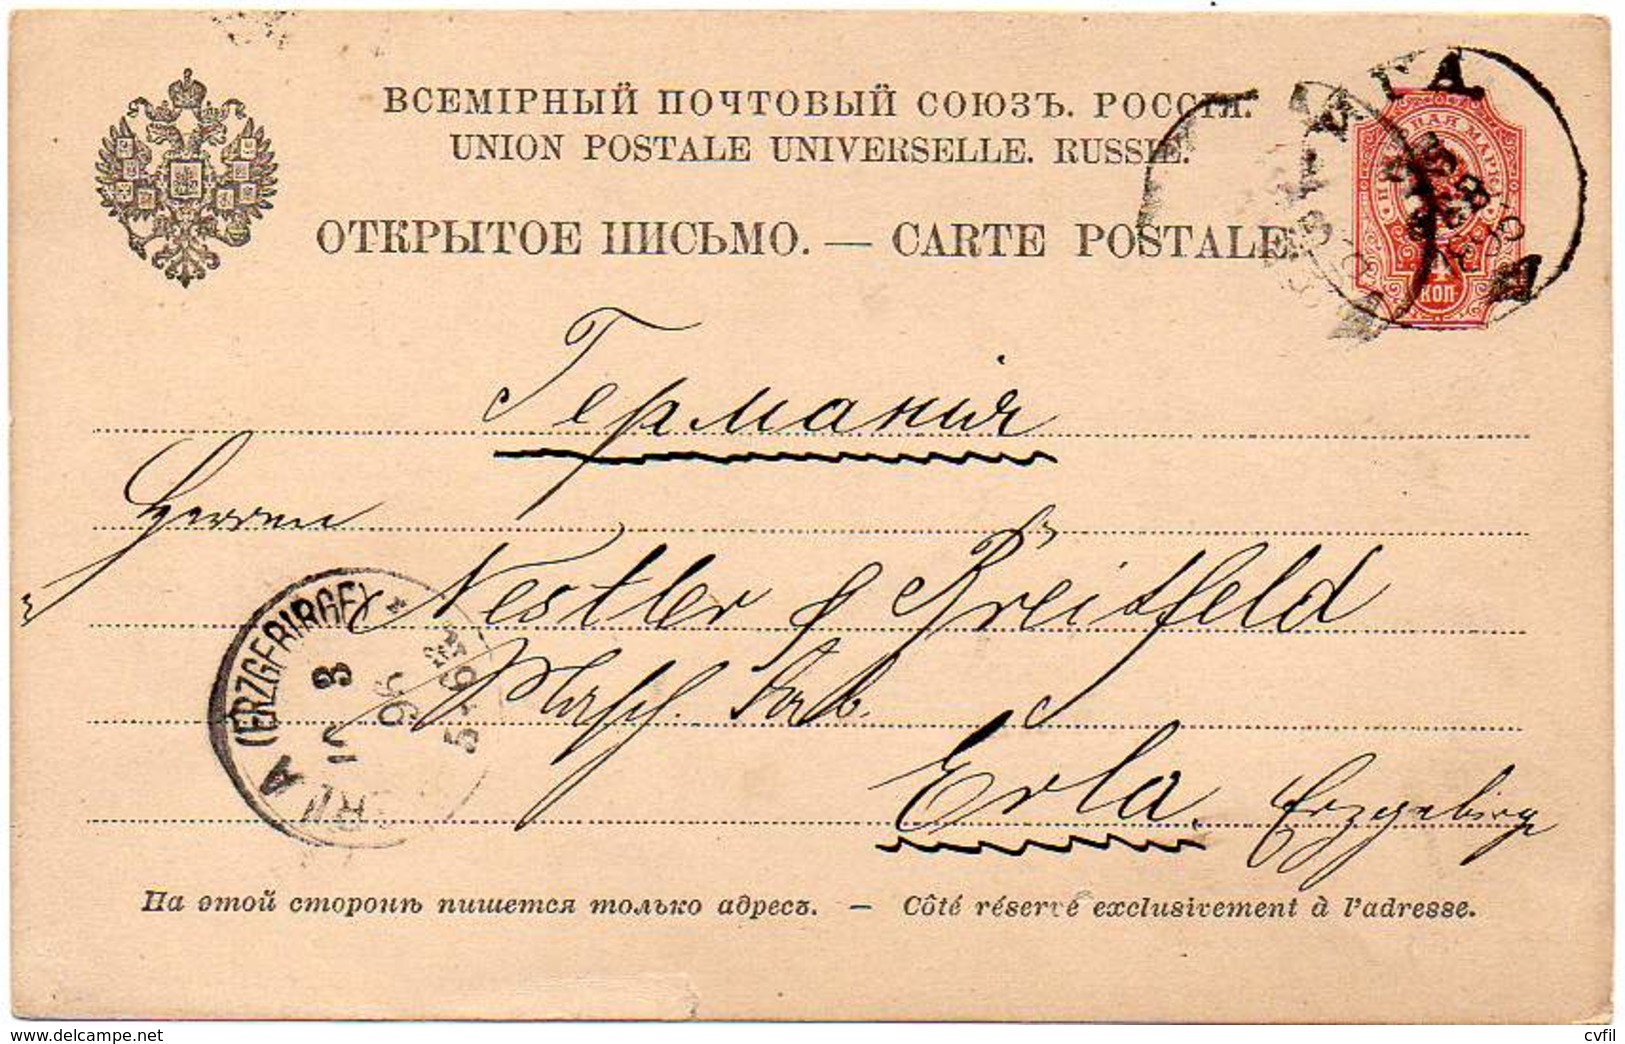 ВСЕМІРНЫЙ ПОЧТОВЫЙ СОЮЗЪ. РОССІЯ.
UNION POSTALE UNIVERSELLE. RUSSIE.
ОТКРЫТОЕ ПИСЬМО. — CARTE POSTALE
КОП
Германія
Herren
Nestler & Breitfeld
Masch. Fab.
Erla. Erzgebirge
(ERZGEBIRGE)
96
5-6
На этой сторонѣ пишется только адресъ. — Côté réservé exclusivement à l'adresse.
cvfil